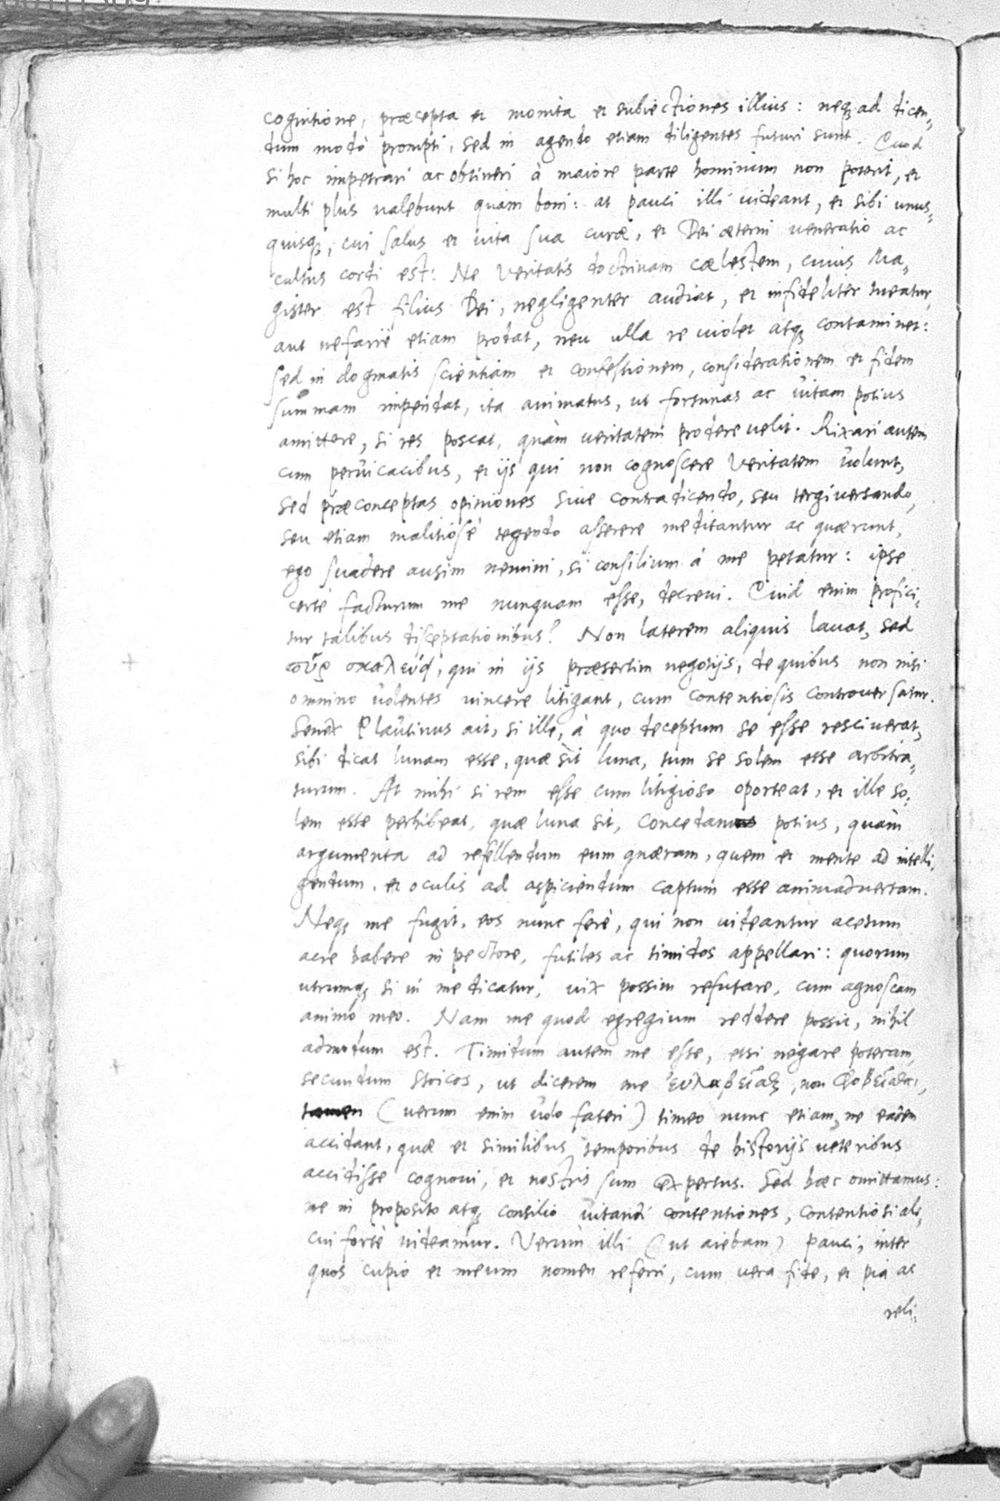 cognitione, præcepta et monita et subiectiones illius: neq; ad dicen-
dum modò prompti, sed in agendo etiam diligentes futuri sunt. Quod
si hoc impetrari ac obtineri à maiore parte hominum non poterit, et
multi plus valebunt quàm boni: at pauci illi videant, et sibi unus-
quisq;, cui salus et vita sua curæ, et Dei æterni veneratio ac
cultus cordi est: Ne veritatis doctrinam cælestem, cuius Ma-
gister est filius Dei, negligenter audiat, et infideliter tueatur,
aut nefariè etiam prodat, neu ulla re violet atq; contaminet:
sed in dogmatis scientiam et confessionem, considerationem et fidem
summam impendat, ita animatus, ut fortunas ac vitam potius
amittere, si res poscat, quàm veritatem prodere velit. Rixari autem
cum pervicacibus, et ijs qui non cognoscere veritatem volunt,
sed præconceptas opiniones sive contradicendo, seu tergiversando,
seu etiam malitiosè tegendo asserere meditantur ac quærunt,
ego suadere ausim nemini, si consilium à me petatur: ipse
certè facturum me nunquam esse, decrevi. Quid enim profici-
tur talibus disceptationibus? Non laterem aliquis lavat, sed
qui in ijs præsertim negotijs, de quibus non nisi
omnino volentes vincere litigant, cum contentiosis controversatur.
Senex Plautinus ait, si ille, à quo deceptum se esse resciverat,
sibi dicat lunam esse, quæ sit luna, tum se solem esse arbitra-
turum. At mihi si rem esse cum litigioso oporteat, et ille so-
lem esse perhibeat, quæ luna sit, concedam potius, quàm
argumenta ad refellendum eum quæram, quem et mente ad intelli-
gendum, et oculis ad aspiciendum captum esse animadvertam.
Neq; me fugit, eos nunc ferè, qui non videantur acetum
acre habere in pectore, futiles ac timidos appellari: quorum
utrumq; si in me dicatur, vix possim refutare, cum agnoscam
animo meo. Nam me quod egregium reddere possit, nihil
admodum est. Timidum autem me esse, etsi negare poteram,
secundum Stoicos, ut dicerem me εὐλαβεῖσθαι, non φοβεῖσθαι,
(verum enim volo fateri) timeo nunc etiam, ne eadem
accidant, quæ et similibus temporibus de historijs veteribus
accidisse cognovi, et nostris sum expertus. Sed hæc omittamus:
ne in proposito atq; consilio vitandi contentiones, contentiosi ali-
cui fortè videamur. Verùm illi (ut aiebam) pauci, inter
quos cupio et meum nomen referri, cum vera fide, et pia ac
reli-